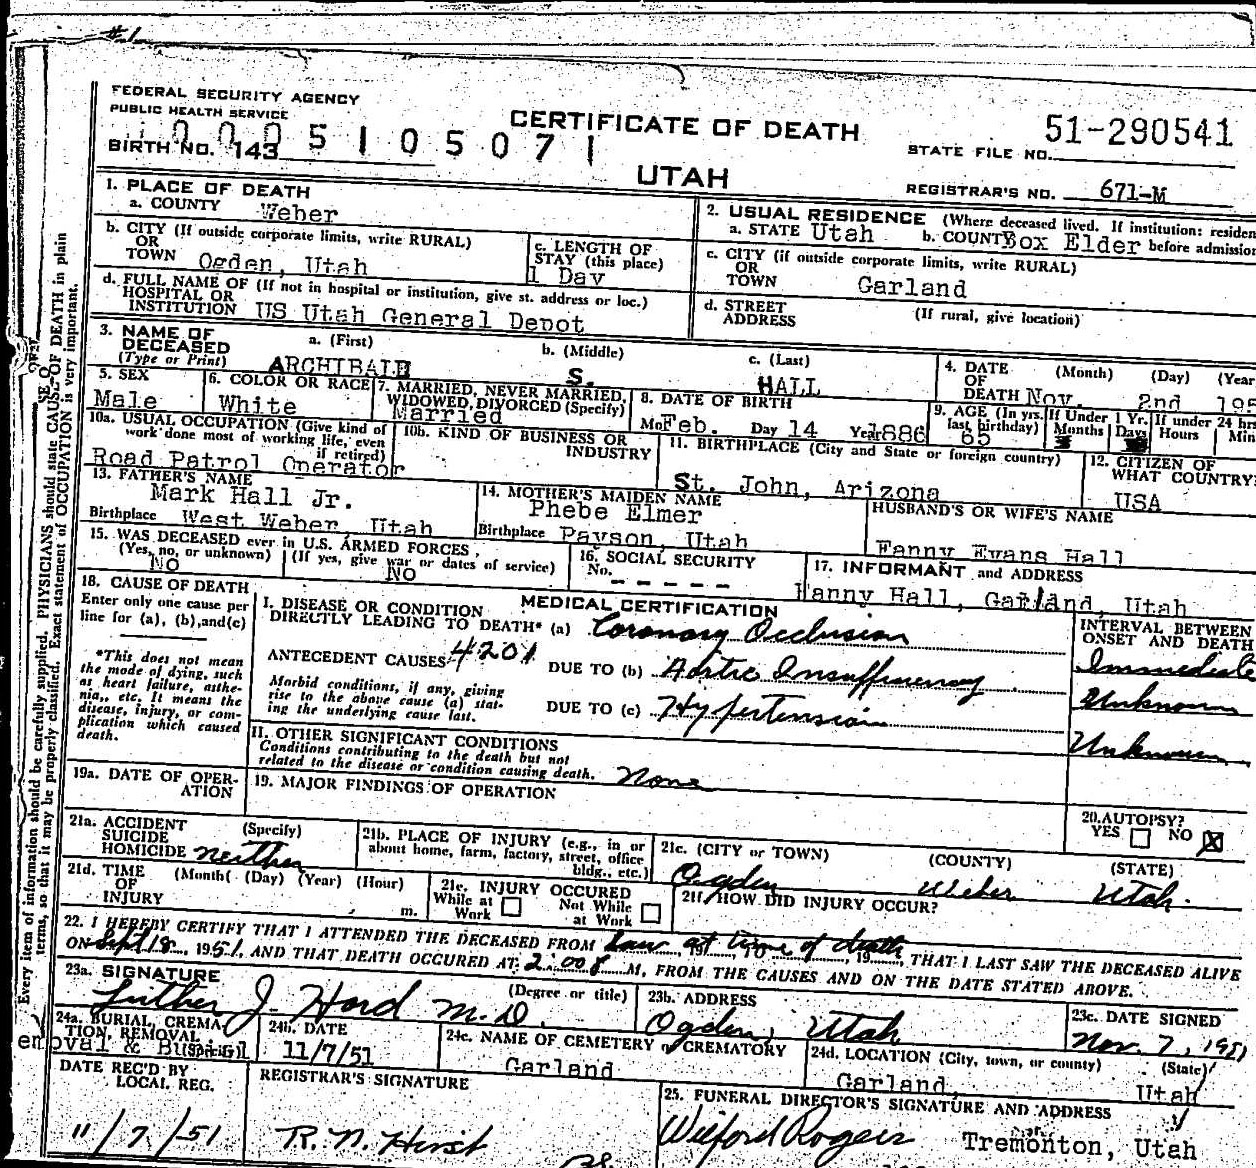 #1
FEDERAL SECURITY AGENCY
PUBLIC HEALTH SERVICE
CERTIFICATE OF DEATH
51-290541
STATE FILE NO.
5 1 0 5 0 7 1
BIRTH NO. 143
UTAH
REGISTRAR'S NO. 671-M
1. PLACE OF DEATH
a. COUNTY Weber
2. USUAL RESIDENCE (Where deceased lived. If institution: residen
a. STATE Utah b. COUNTY Box Elder before admission
b. CITY (If outside corporate limits, write RURAL)
OR
TOWN Ogden, Utah
c. LENGTH OF
STAY (this place)
1 Day
c. CITY (if outside corporate limits, write RURAL)
OR
TOWN Garland
d. FULL NAME OF (If not in hospital or institution, give st. address or loc.)
HOSPITAL OR
INSTITUTION US Utah General Depot
d. STREET (If rural, give location)
ADDRESS
3. NAME OF
DECEASED
(Type or Print)
a. (First) b. (Middle) c. (Last)
ARCHIBALD S. HALL
4. DATE (Month) (Day) (Year
OF
DEATH Nov. 2nd 195
5. SEX
Male
6. COLOR OR RACE
White
7. MARRIED, NEVER MARRIED,
WIDOWED, DIVORCED (Specify)
Married
8. DATE OF BIRTH
Mo Feb. Day 14 Year 1886
9. AGE (In yrs.
last birthday)
65
If Under 1 Yr.
Months Days
If under 24 hrs
Hours Min
10a. USUAL OCCUPATION (Give kind of
work done most of working life, even
if retired)
Road Patrol Operator
10b. KIND OF BUSINESS OR
INDUSTRY
11. BIRTHPLACE (City and State or foreign country)
St. John, Arizona
12. CITIZEN OF
WHAT COUNTRY?
USA
13. FATHER'S NAME
Mark Hall Jr.
Birthplace West Weber, Utah
14. MOTHER'S MAIDEN NAME
Phebe Elmer
Birthplace Payson, Utah
HUSBAND'S OR WIFE'S NAME
Fanny Evans Hall
15. WAS DECEASED ever in U.S. ARMED FORCES,
(Yes, no, or unknown) (If yes, give war or dates of service)
No NO
16. SOCIAL SECURITY
No. - - - - -
17. INFORMANT and ADDRESS
Fanny Hall, Garland, Utah
18. CAUSE OF DEATH
Enter only one cause per
line for (a), (b), and (c)
*This does not mean
the mode of dying, such
as heart failure, asthe-
nia, etc. It means the
disease, injury, or com-
plication which caused
death.
MEDICAL CERTIFICATION
I. DISEASE OR CONDITION
DIRECTLY LEADING TO DEATH* (a) Coronary Occlusion
ANTECEDENT CAUSES 4201 DUE TO (b) Aortic Insufficiency
Morbid conditions, if any, giving
rise to the above cause (a) stat-
ing the underlying cause last.
DUE TO (c) Hypertension
INTERVAL BETWEEN
ONSET AND DEATH
Immediate
Unknown
Unknown
II. OTHER SIGNIFICANT CONDITIONS
Conditions contributing to the death but not
related to the disease or condition causing death. None
19a. DATE OF OPER-
ATION
19. MAJOR FINDINGS OF OPERATION
20. AUTOPSY?
YES NO X
21a. ACCIDENT (Specify)
SUICIDE
HOMICIDE neither
21b. PLACE OF INJURY (e.g., in or
about home, farm, factory, street, office
bldg., etc.)
21c. (CITY or TOWN) (COUNTY) (STATE)
Ogden Weber Utah.
21d. TIME (Month) (Day) (Year) (Hour)
OF
INJURY m.
21e. INJURY OCCURED
While at Work Not While at Work
21f. HOW DID INJURY OCCUR?
22. I HEREBY CERTIFY THAT I ATTENDED THE DECEASED FROM Saw at time of death, 19, THAT I LAST SAW THE DECEASED ALIVE
ON Sept 18, 1951, AND THAT DEATH OCCURED AT M, FROM THE CAUSES AND ON THE DATE STATED ABOVE.
23a. SIGNATURE (Degree or title)
Luther J. Hord M.D.
23b. ADDRESS
Ogden, Utah
23c. DATE SIGNED
Nov. 7, 1951
24a. BURIAL, CREMA-
TION, REMOVAL
(Specify)
emoval & Burial
24b. DATE
11/7/51
24c. NAME OF CEMETERY or CREMATORY
Garland
24d. LOCATION (City, town, or county) (State)
Garland, Utah
DATE REC'D BY
LOCAL REG.
11/7/51
REGISTRAR'S SIGNATURE
R. N. Hirst
25. FUNERAL DIRECTOR'S SIGNATURE AND ADDRESS
Wilford Rogers Tremonton, Utah
Every item of information should be carefully supplied. PHYSICIANS should state CAUSE OF DEATH in plain
terms, so that it may be properly classified. Exact statement of OCCUPATION is very important.